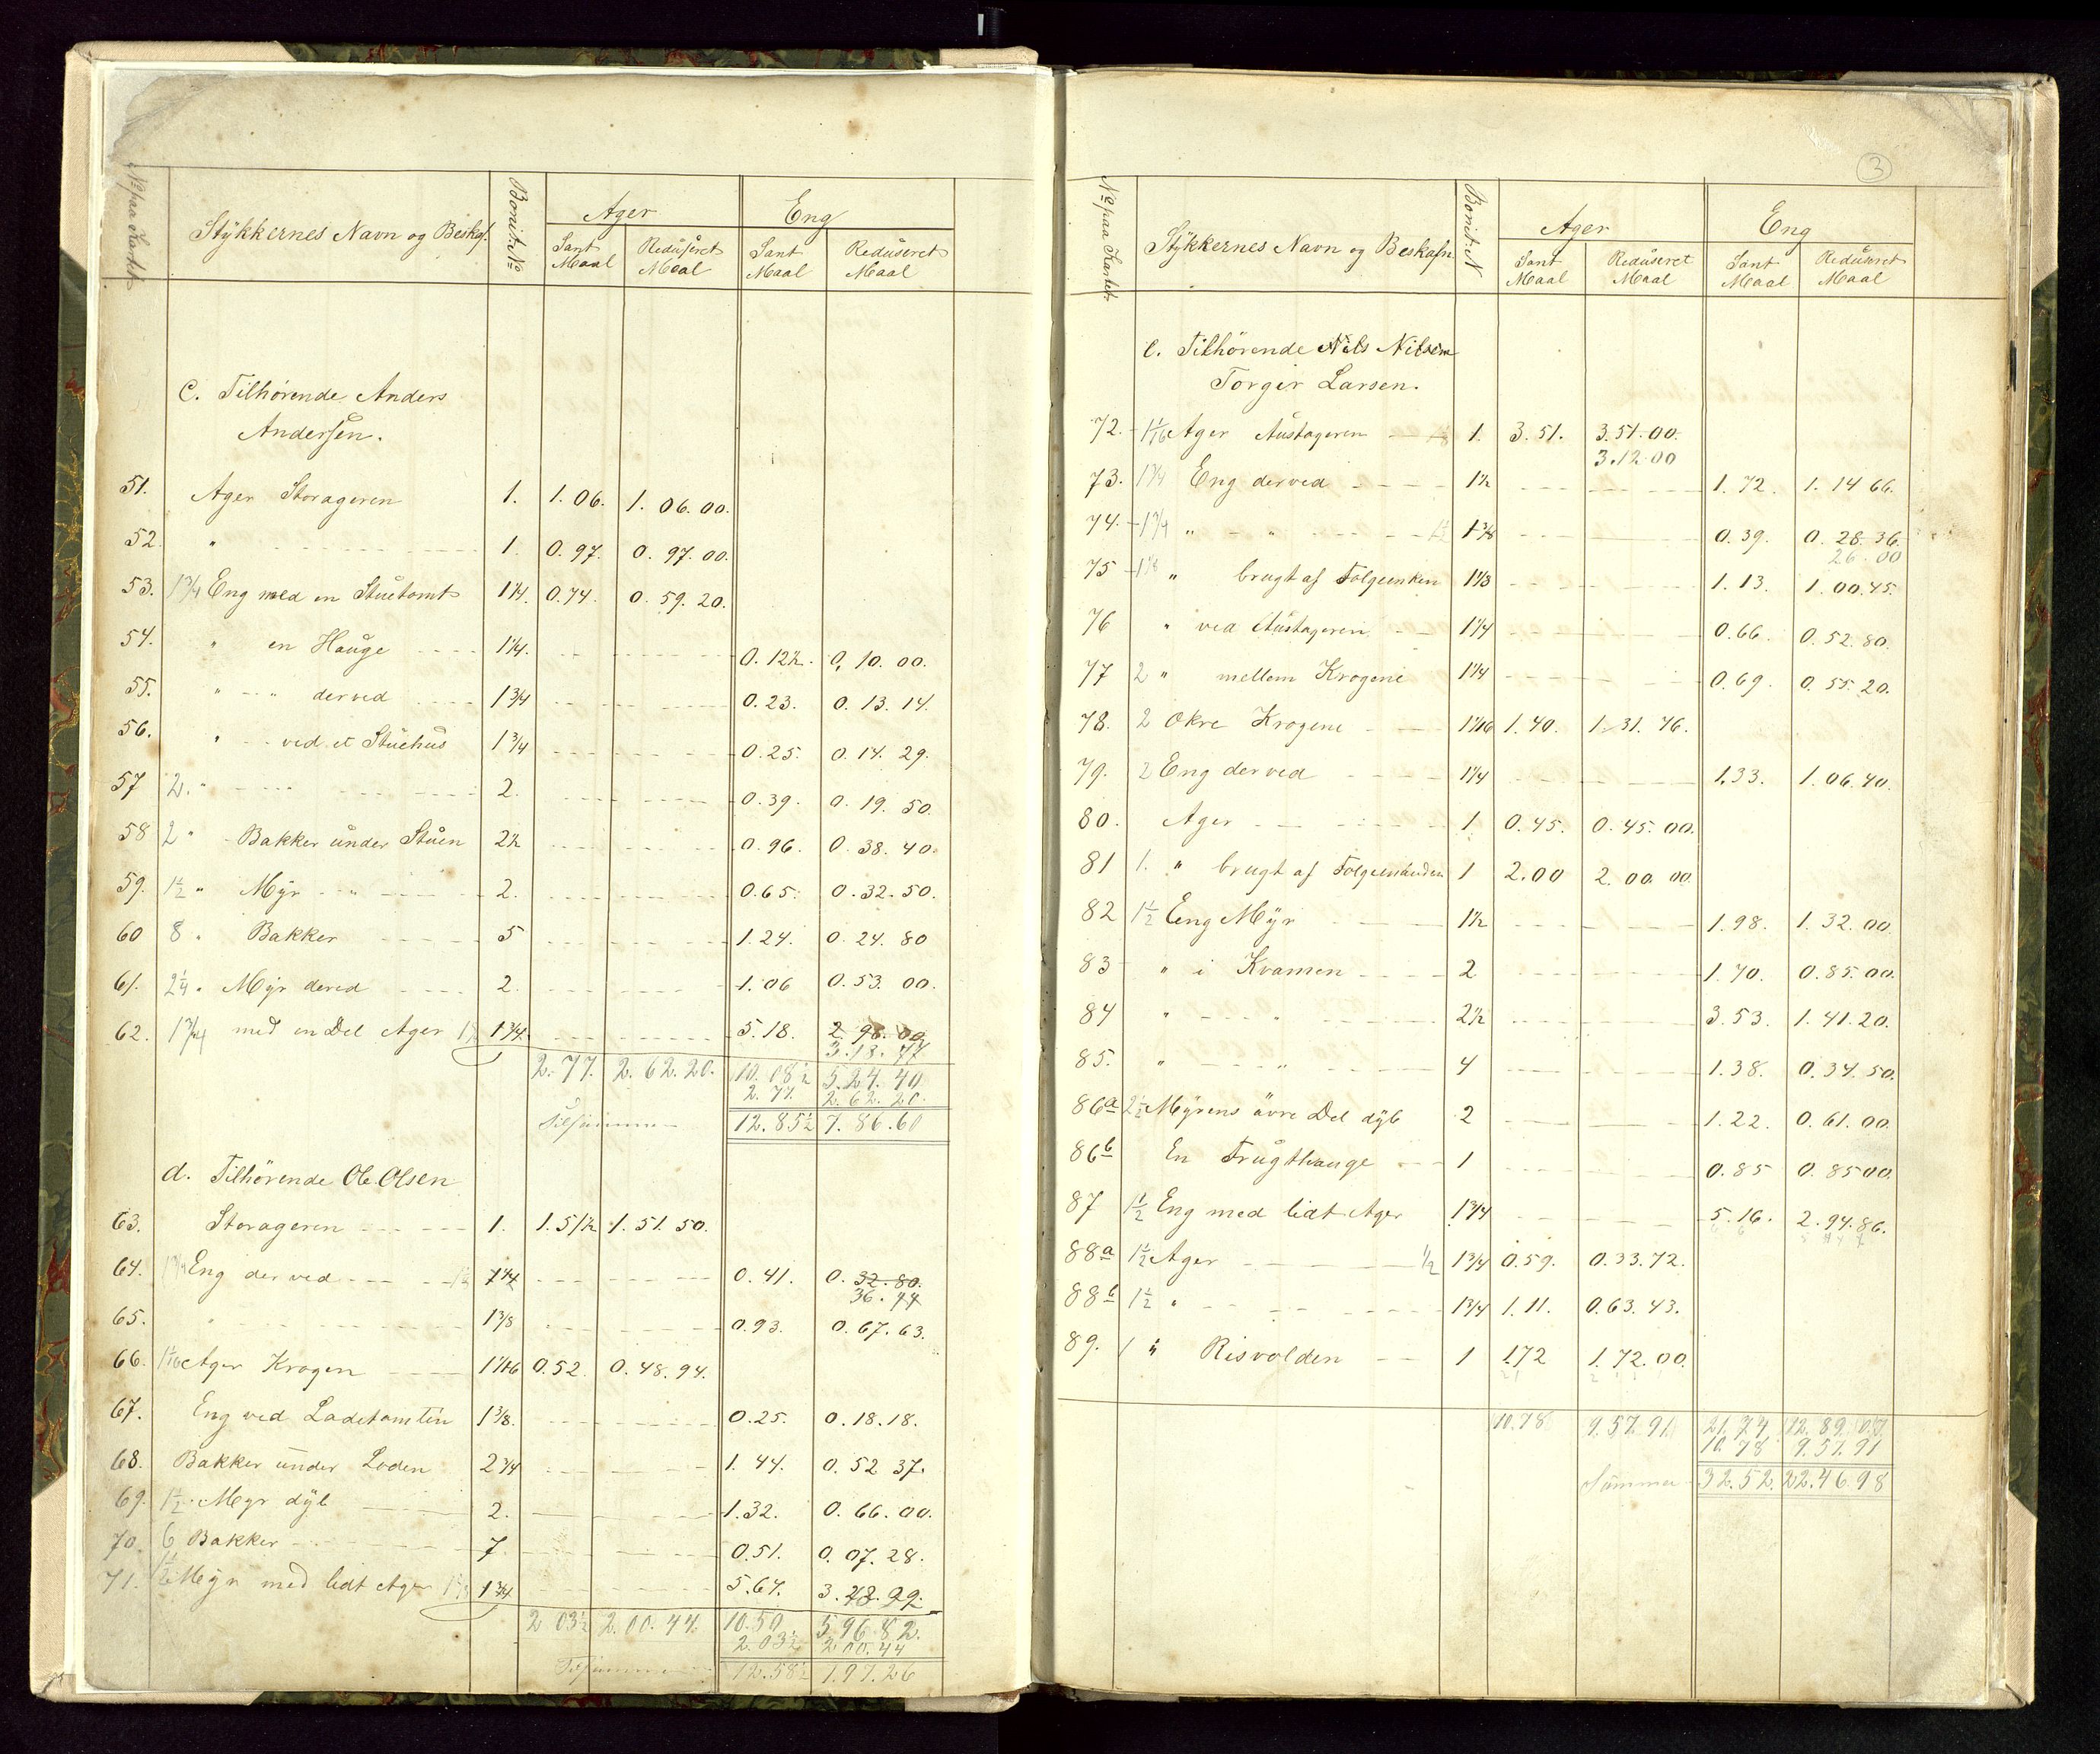 No paa Kartet
Stykkernes Navn og Beskaf.
Bonit. No
Ager
Eng
Sant Maal
Reduseret Maal
Sant Maal
Reduseret Maal
c. Tilhörende Anders
Andersen.
51. Ager Storageren 1. 1.06. 1. 06. 00.
52. " 1. 0.97. 0. 97. 00.
53. 1 3/4 Eng med en Stuetomt 1 1/4. 0.74. 0. 59. 20.
54. " en Hauge 1 1/4. 0.12 1/2. 0. 10. 00.
55. " " derved 1 3/4 0.23. 0. 13. 14.
56. " ved et Stuehus 1 3/4 0.25. 0. 14. 29.
57 2. " 2. 0.39. 0. 19. 50.
58 2 " Bakker under Stuen 2 1/2 0.96. 0. 38. 40.
59. 1 1/2 " Myr " 2. 0.65. 0.32.50.
60 8 " Bakker 5 1.24. 0. 24. 80
61. 2 1/4 " Myr derved 2. 1.06 0.53. 00.
62. 1 3/4 med en Del Ager 1 3/4. 5.18. 2 96. 00
3.18.77
2.77. 2.62.20. 10.08 1/2 5.24.40
2.77. 2.62.20.
Tilsammen 12.85 1/2 7.86.60
d. Tilhörende Ole Olsen
63. Storageren 1. 1.51 1/2 1.51.50.
64. 1 3/4 Eng derved 0.41. 0. 32.80.
36.44
65. " 1 3/8 0.93. 0.67.63.
66. 1 1/16 Ager Krogen 1 1/16 0.52. 0.48.94.
67. Eng ved Ladetomten 1 3/8. 0.25. 0.18.18.
68. Bakker under Loden 2 3/4 1.44. 0.52 37.
69. 1 1/2 Myr dyb 2. 1.32. 0.66.00.
70. 6 Bakker 7 0.51. 0.07.28.
71. Myr med lidt Ager 1 3/4 5.64. 3.
2 03 1/2 2.00.44 10.50 5 96 82.
2.03 1/2 2 00.44
Tilsammen 12.58 1/2 7.97.26
3
No paa Kartet
Stykkernes Navn og Beskafn
Bonit. N
Ager
Eng
Sant Maal
Reduseret Maal
Sant Maal
Reduseret Maal
e. Tilhörende Nils Nilsen
Torger Larsen.
72. 1 1/16 Ager Austageren 1. 3.51. 3.51.00.
3.12.00
73. 1 3/4 Eng derved 1 1/2 1.72. 1.14 66.
74. 1 3/4 " " 1 3/8 0.39. 0.28.36.
26.00
75 1 1/8 " brugt af Folgeenken 1 1/8 1.13. 1.00.45.
76 " ved Austageren 1 1/4 0.66. 0.52.80.
77 2 " mellem Krogene 1 1/4 0.69. 0.55.20.
78. 2 Okre Krogene 1 1/16 1.40. 1.31.76.
79. 2 Eng derved 1 1/4 1.33. 1.06.40.
80. Ager 1 0.45. 0.45.00.
81 1. " brugt af Folgemanden 1 2.00 2.00.00
82 1 1/2 Eng Myr 1 1/2 1.98. 1.32.00.
83 " i Kvamen 2 1.70. 0.85.00.
84 " " 2 1/2 3.53. 1.41.20.
85. " " 4 1.38. 0.34.50.
86a 2 1/2 Myrens övre Del dyb 2 1.22. 0.61.00.
86b En Frugthauge 1 0.85 0.8500.
87 1 1/2 Eng med lidt Ager 1 3/4 5.16. 2.94.86.
88a 1 1/2 Ager 1/2 1 3/4 0.59. 0.33.72.
88b 1 1/2 " 1 3/4 1.11. 0.63.43.
89. 1 " Risvolden 1 1.72 1.72.00.
10.78 9.57.91 21.74 12.89.07
10.78 9.57.91
Summa 32.52. 22.46.98